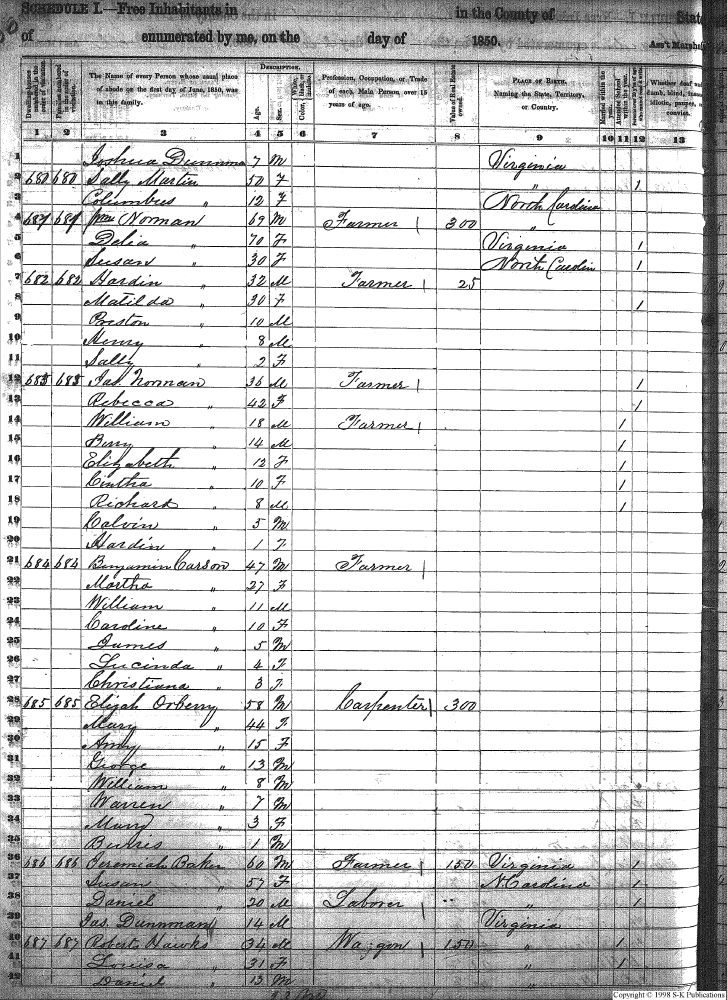 SCHEDULE I.—Free Inhabitants in in the County of State
of enumerated by me, on the day of 1850. Ass't Marshal
The Name of every Person whose usual place of abode on the first day of June, 1850, was in this family.
Description.
Age.
Sex.
White, Color, black, or
Profession, Occupation, or Trade of each Male Person over 15 years of age.
Value of Real Estate owned.
Place of Birth. Naming the State, Territory, or Country.
Married within the year.
Attended School within the year.
Whether deaf and dumb, blind, insane, idiotic, pauper, or convict.
1 2 3 4 5 6 7 8 9 10 11 12 13
1 Joshua 7 M Virginia
2 680 680 Sally Martin 50 F " 1
3 Columbus " 12 F North Carolina
4 Norman 69 M Farmer 1 300 "
5 Delia " 70 F Virginia 1
6 Susan " 30 F North Carolin 1
7 682 682 Hardin " 32 M Farmer 1 25
8 Matilda " 30 F 1
9 Preston " 10 M
10 Henry " 8 M
11 Sally " 2 F
12 683 683 Jas. Norman 36 M Farmer 1 1
13 Rebecca " 42 F 1
14 William " 18 M Farmer 1 1
15 Berry " 14 M 1
16 Elizabeth " 12 F 1
17 Cintha " 10 F 1
18 Richard " 8 M 1
19 Calvin " 5 M
20 Hardin " 1 F
21 684 684 Benjamin Carson 47 M Farmer 1
22 Martha " 27 F
23 William " 11 M
24 Caroline " 10 F
25 James " 5 M
26 Lucinda " 4 F
27 Christiana " 3 F
28 685 685 Elijah Orberry 58 M Carpenter 1 300
29 Mary " 44 F
30 Amy " 15 F
31 George " 13 M
32 William " 8 M
33 Warren " 7 M
34 Mary " 3 F
35 " 1 M
36 686 686 Jeremiah Baker 60 M Farmer 1 150 Virginia 1
37 Susan " 57 F N Carolina 1
38 Daniel " 20 M Laborer 1 " " 1
39 Jas. Dunnman 14 M Virginia
40 687 687 Robert Hawks 34 M Waggon 1 150 " 1
41 Louisa " 31 F " 1
42 Daniel " 13 M
Copyright © 1998 S-K Publications